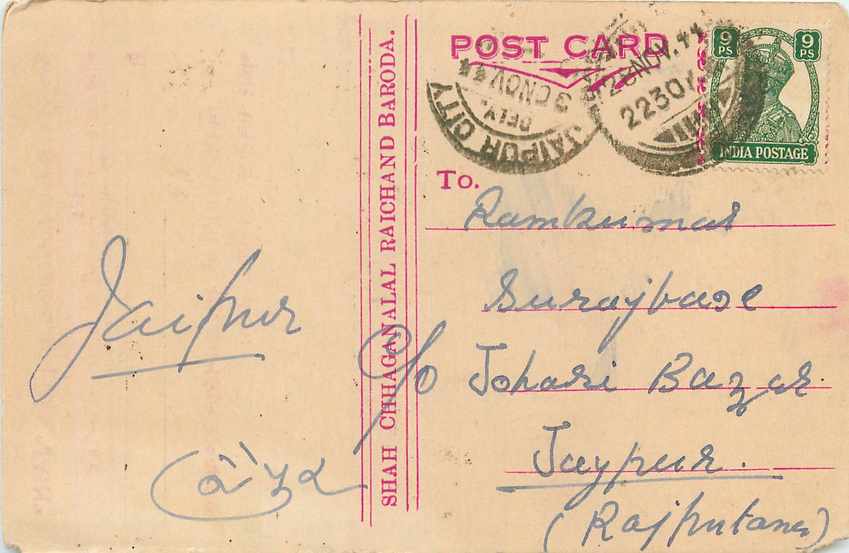 POST CARD
9 PS 9 PS
INDIA POSTAGE
28 NOV. 44
2230
JAIPUR CITY
DELY.
3 0 NOV 44
SHAH CHHAGANALAL RAICHAND BARODA.
To.
Ramkumar
Surajbaxe
c/o Johari Bazar.
Jaypur.
(Rajputana)
Jaipur